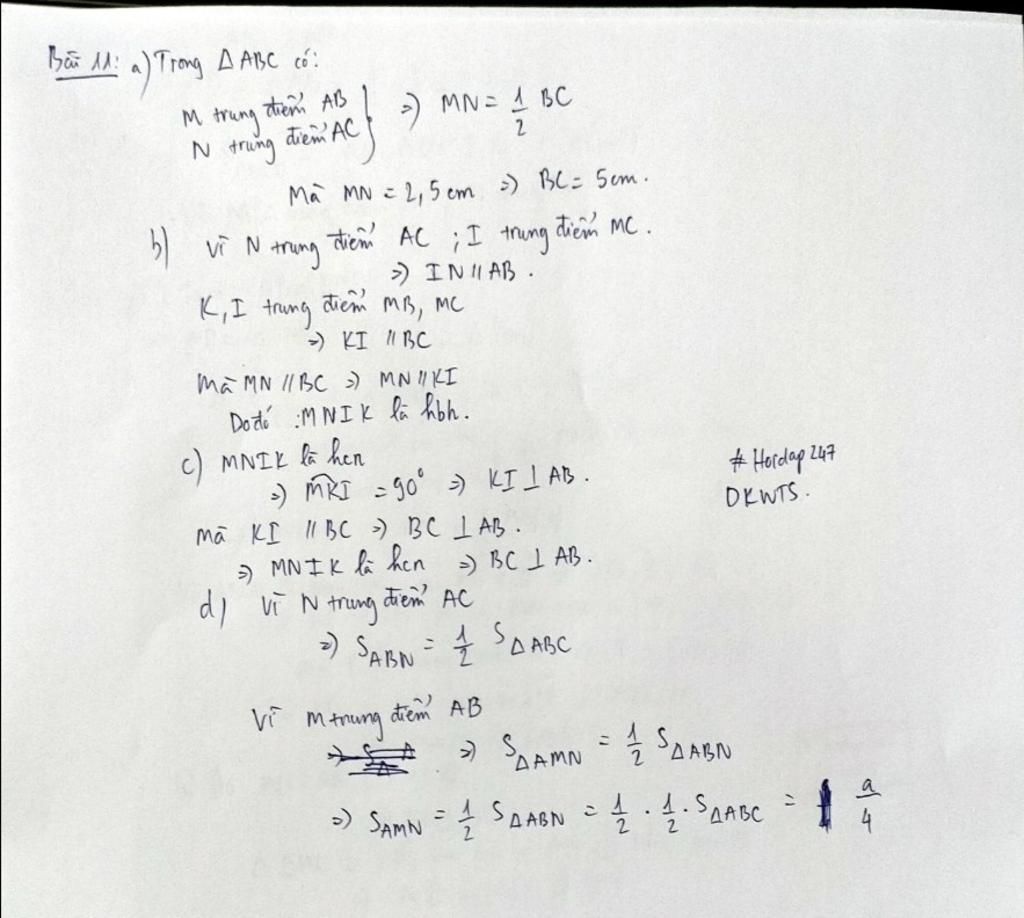 Bài 11: a) Trong Δ ABC có:
M trung điểm AB
N trung điểm AC } => MN = 1/2 BC
Mà MN = 2,5 cm => BC = 5 cm.
b) Vì N trung điểm AC ; I trung điểm MC.
=> IN // AB.
K, I trung điểm MB, MC
=> KI // BC
Mà MN // BC => MN // KI
Do đó : MNIK là hbh.
c) MNIK là hcn
=> MKI = 90° => KI ⊥ AB.
# Hoidap247
DKWTS.
mà KI // BC => BC ⊥ AB.
=> MNIK là hcn => BC ⊥ AB.
d) Vì N trung điểm AC
=> S_ABN = 1/2 S_ΔABC
Vì M trung điểm AB
=> S_ΔAMN = 1/2 S_ΔABN
=> S_AMN = 1/2 S_ΔABN = 1/2 . 1/2 . S_ΔABC = a/4